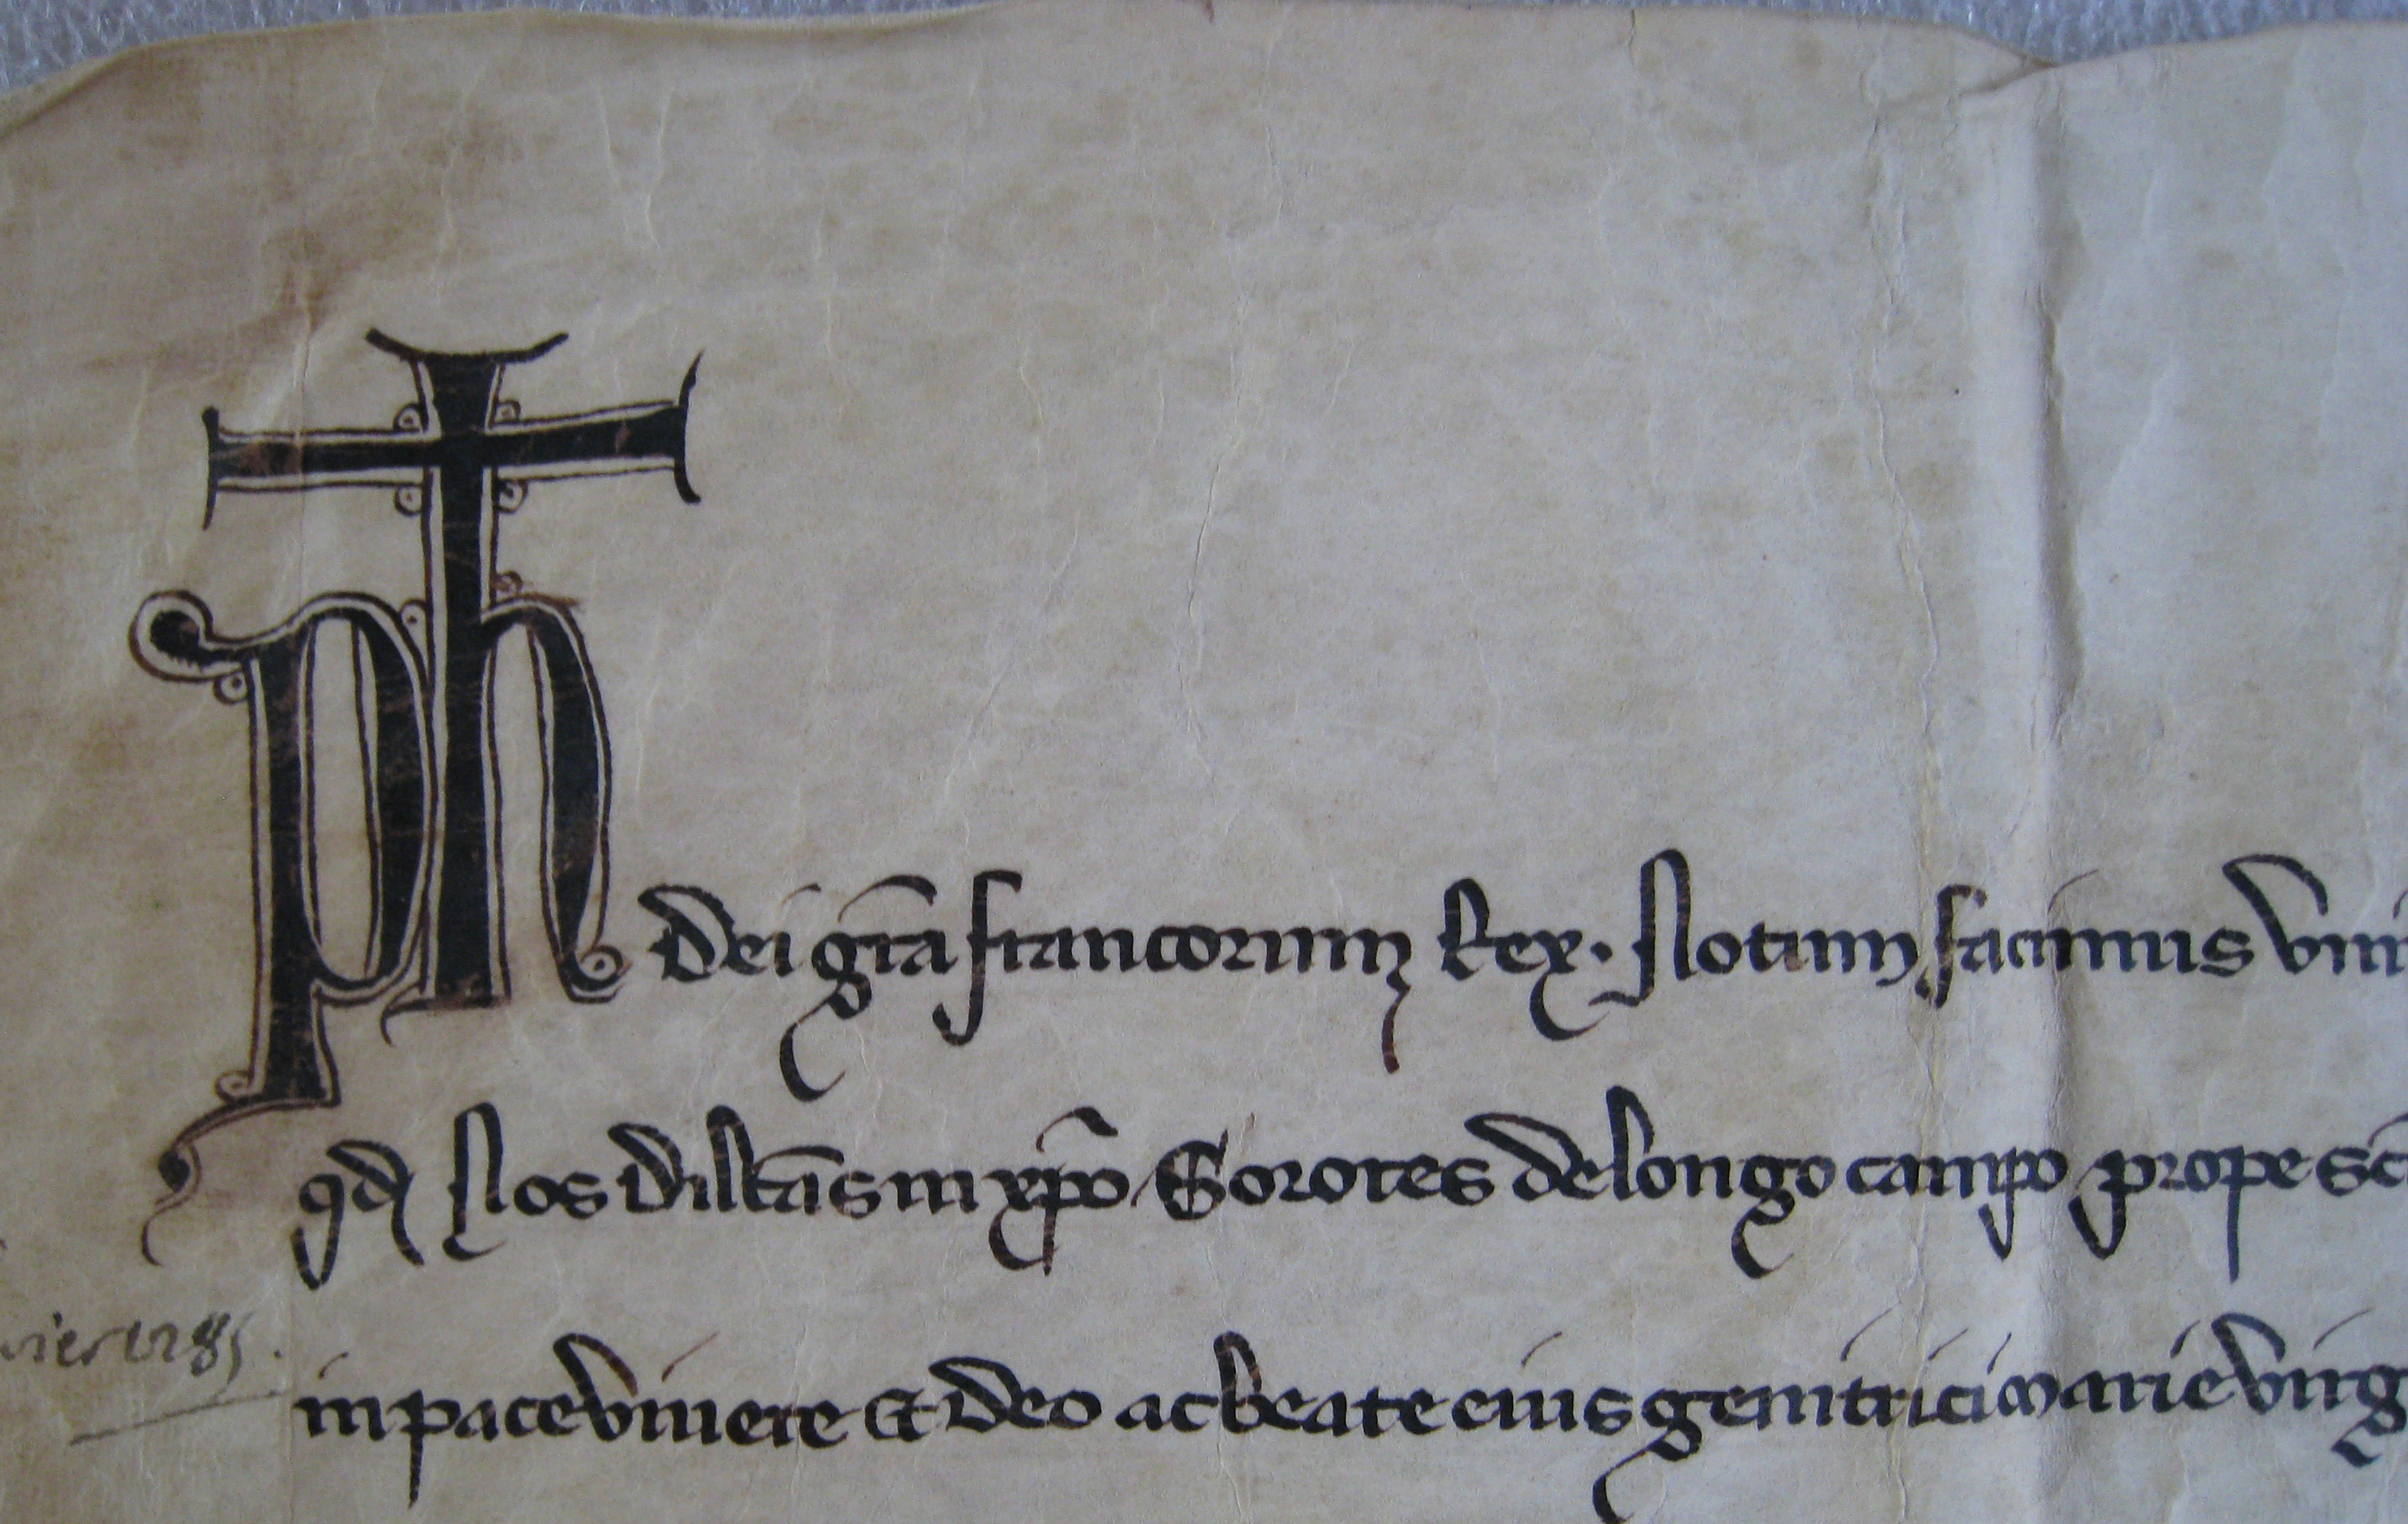 Ph dei gr̄a francorum Rex. Notum facimus vni
qd Nos dilc̄as in xp̄o Sorores de longo campo prope sc̄
in pace viuere et deo ac beate eius genitrici marie virg